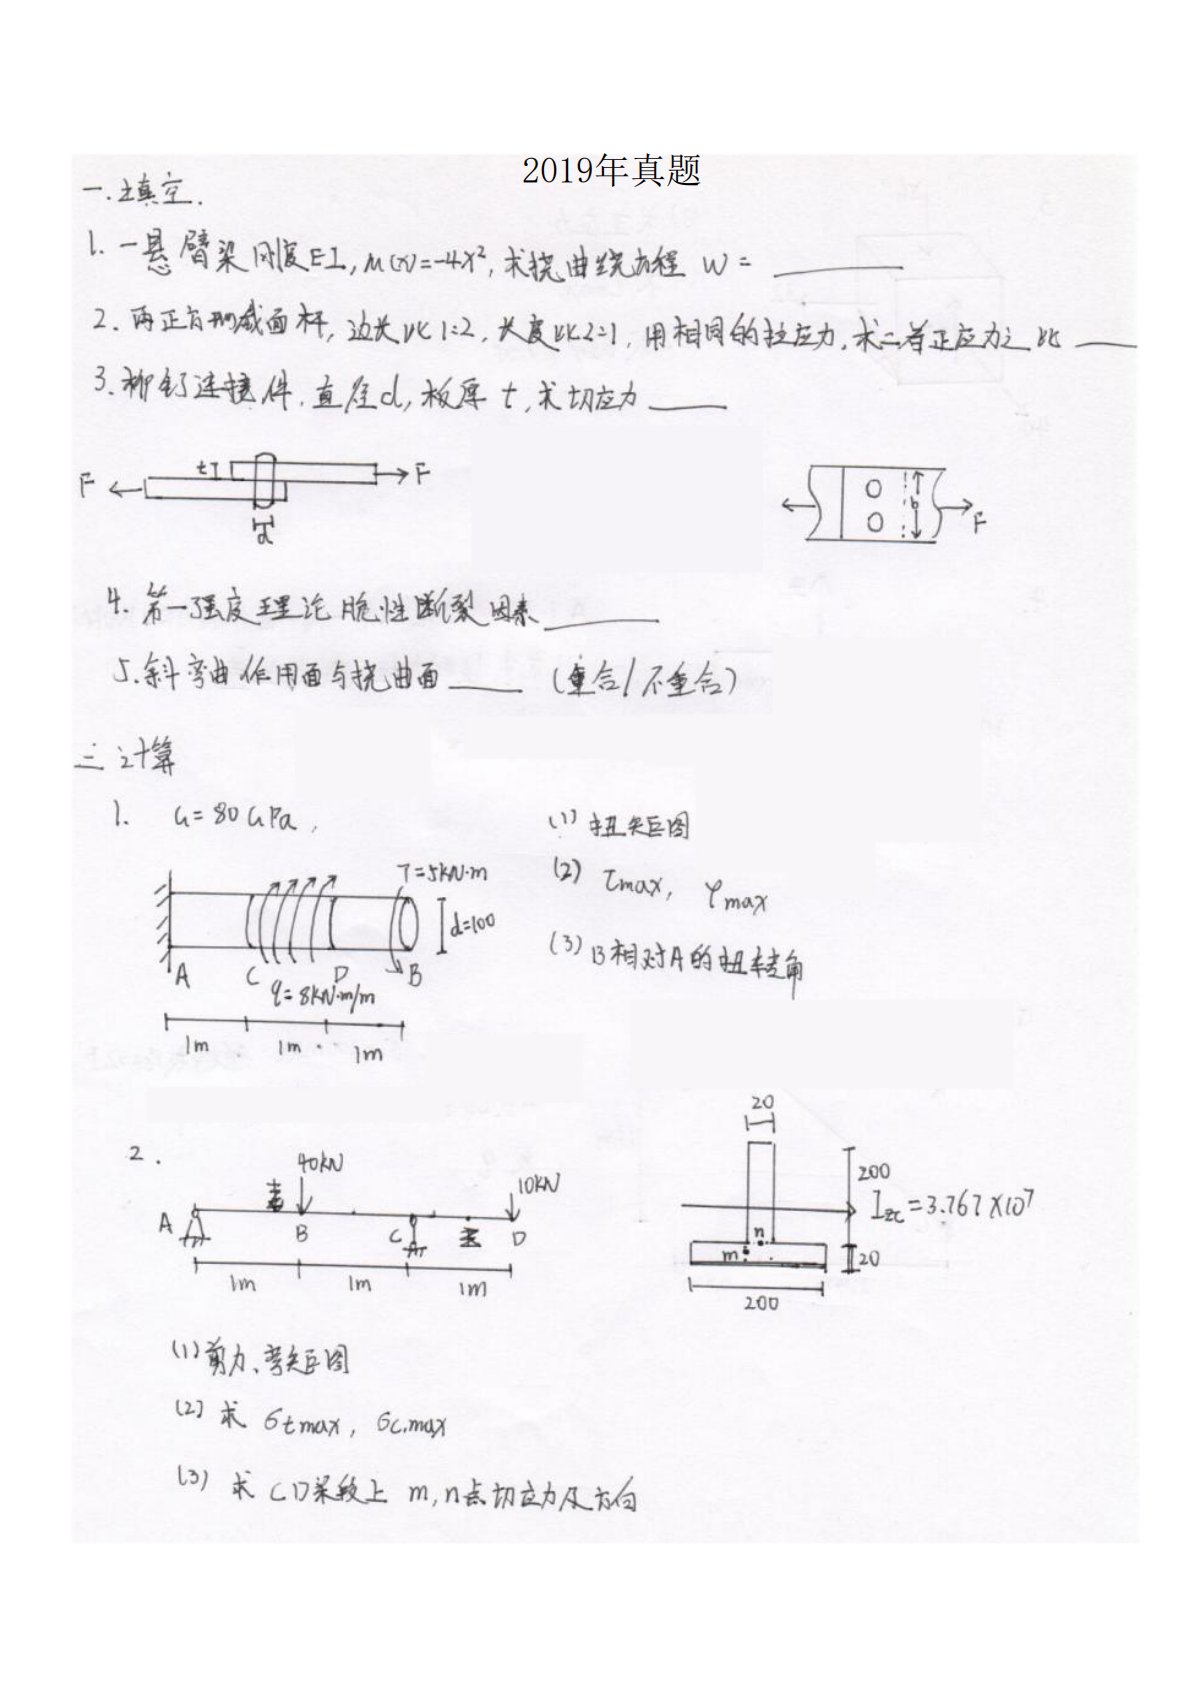 2019年真题
一.填空.
1. 一悬臂梁刚度EI, M(x)=-4x², 求挠曲线方程 W = ______
2. 两正方形截面杆, 边长比1:2, 长度比2:1, 用相同的拉应力, 求二者正应力之比 ____
3. 柳钉连接件, 直径d, 板厚 t, 求切应力 ____
F t d F b F
4. 第一强度理论 脆性断裂因素 ______
5. 斜弯曲作用面与挠曲面 ____ (重合/不重合)
三 计算
1. G=80GPa,
(1) 扭矩图
(2) τmax, φmax
(3) B相对A的扭转角
T=5kN·m
d=100
A C D B
q=8kN·m/m
1m 1m 1m
2.
40kN
10kN
A B C D
1m 1m 1m
20
200
Izc=3.767×10⁷
n
m
20
200
(1) 剪力、弯矩图
(2) 求 σtmax, σc,max
(3) 求 CD梁段上 m, n点切应力及方向